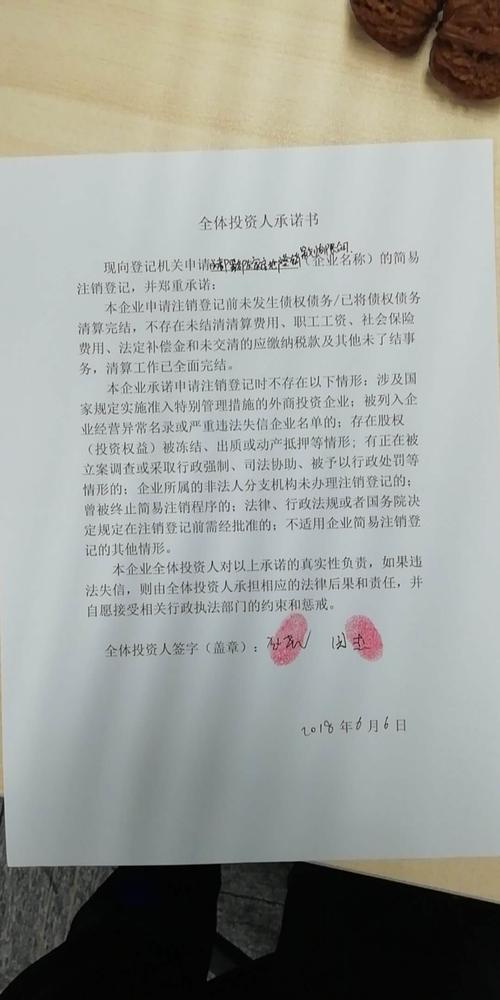 全体投资人承诺书
现向登记机关申请（企业名称）的简易
注销登记，并郑重承诺：
本企业申请注销登记前未发生债权债务/已将债权债务
清算完结，不存在未结清清算费用、职工工资、社会保险
费用、法定补偿金和未交清的应缴纳税款及其他未了结事
务，清算工作已全面完结。
本企业承诺申请注销登记时不存在以下情形：涉及国
家规定实施准入特别管理措施的外商投资企业；被列入企
业经营异常名录或严重违法失信企业名单的；存在股权
（投资权益）被冻结、出质或动产抵押等情形；有正在被
立案调查或采取行政强制、司法协助、被予以行政处罚等
情形的；企业所属的非法人分支机构未办理注销登记的；
曾被终止简易注销程序的；法律、行政法规或者国务院决
定规定在注销登记前需经批准的；不适用企业简易注销登
记的其他情形。
本企业全体投资人对以上承诺的真实性负责，如果违
法失信，则由全体投资人承担相应的法律后果和责任，并
自愿接受相关行政执法部门的约束和惩戒。
全体投资人签字（盖章）：
2018年6月6日